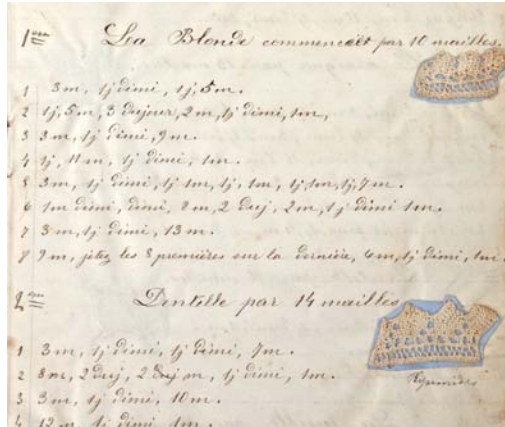 1ère La Blonde commencée par 10 mailles.
1 3m, 1j dimi, 1j, 5m.
2 1j, 5m, 3 dujour, 2m, 1j dimi, 1m,
3 3m, 1j dimi, 9m.
4 1j, 11m, 1j dimi, 1m.
5 3m, 1j dimi, 1j 1m, 1j, 1m, 1j, 1m, 1j, 7m.
6 1m dimi, dimi, 8m, 2 duj, 2m, 1j dimi 1m.
7 3m, 1j dimi, 13m.
8 9m, jetez les 8 premières sur la dernière, 6m, 1j dimi, 1m.
2ème Dentelle par 14 mailles
1 3m, 1j dimi, 1j dimi, 7m.
2 8m, 2 duj, 2 duj, m, 1j dimi, 1m.
Pyramides
3 3m, 1j dimi, 10m.
4 12m, 1j dimi, 1m.